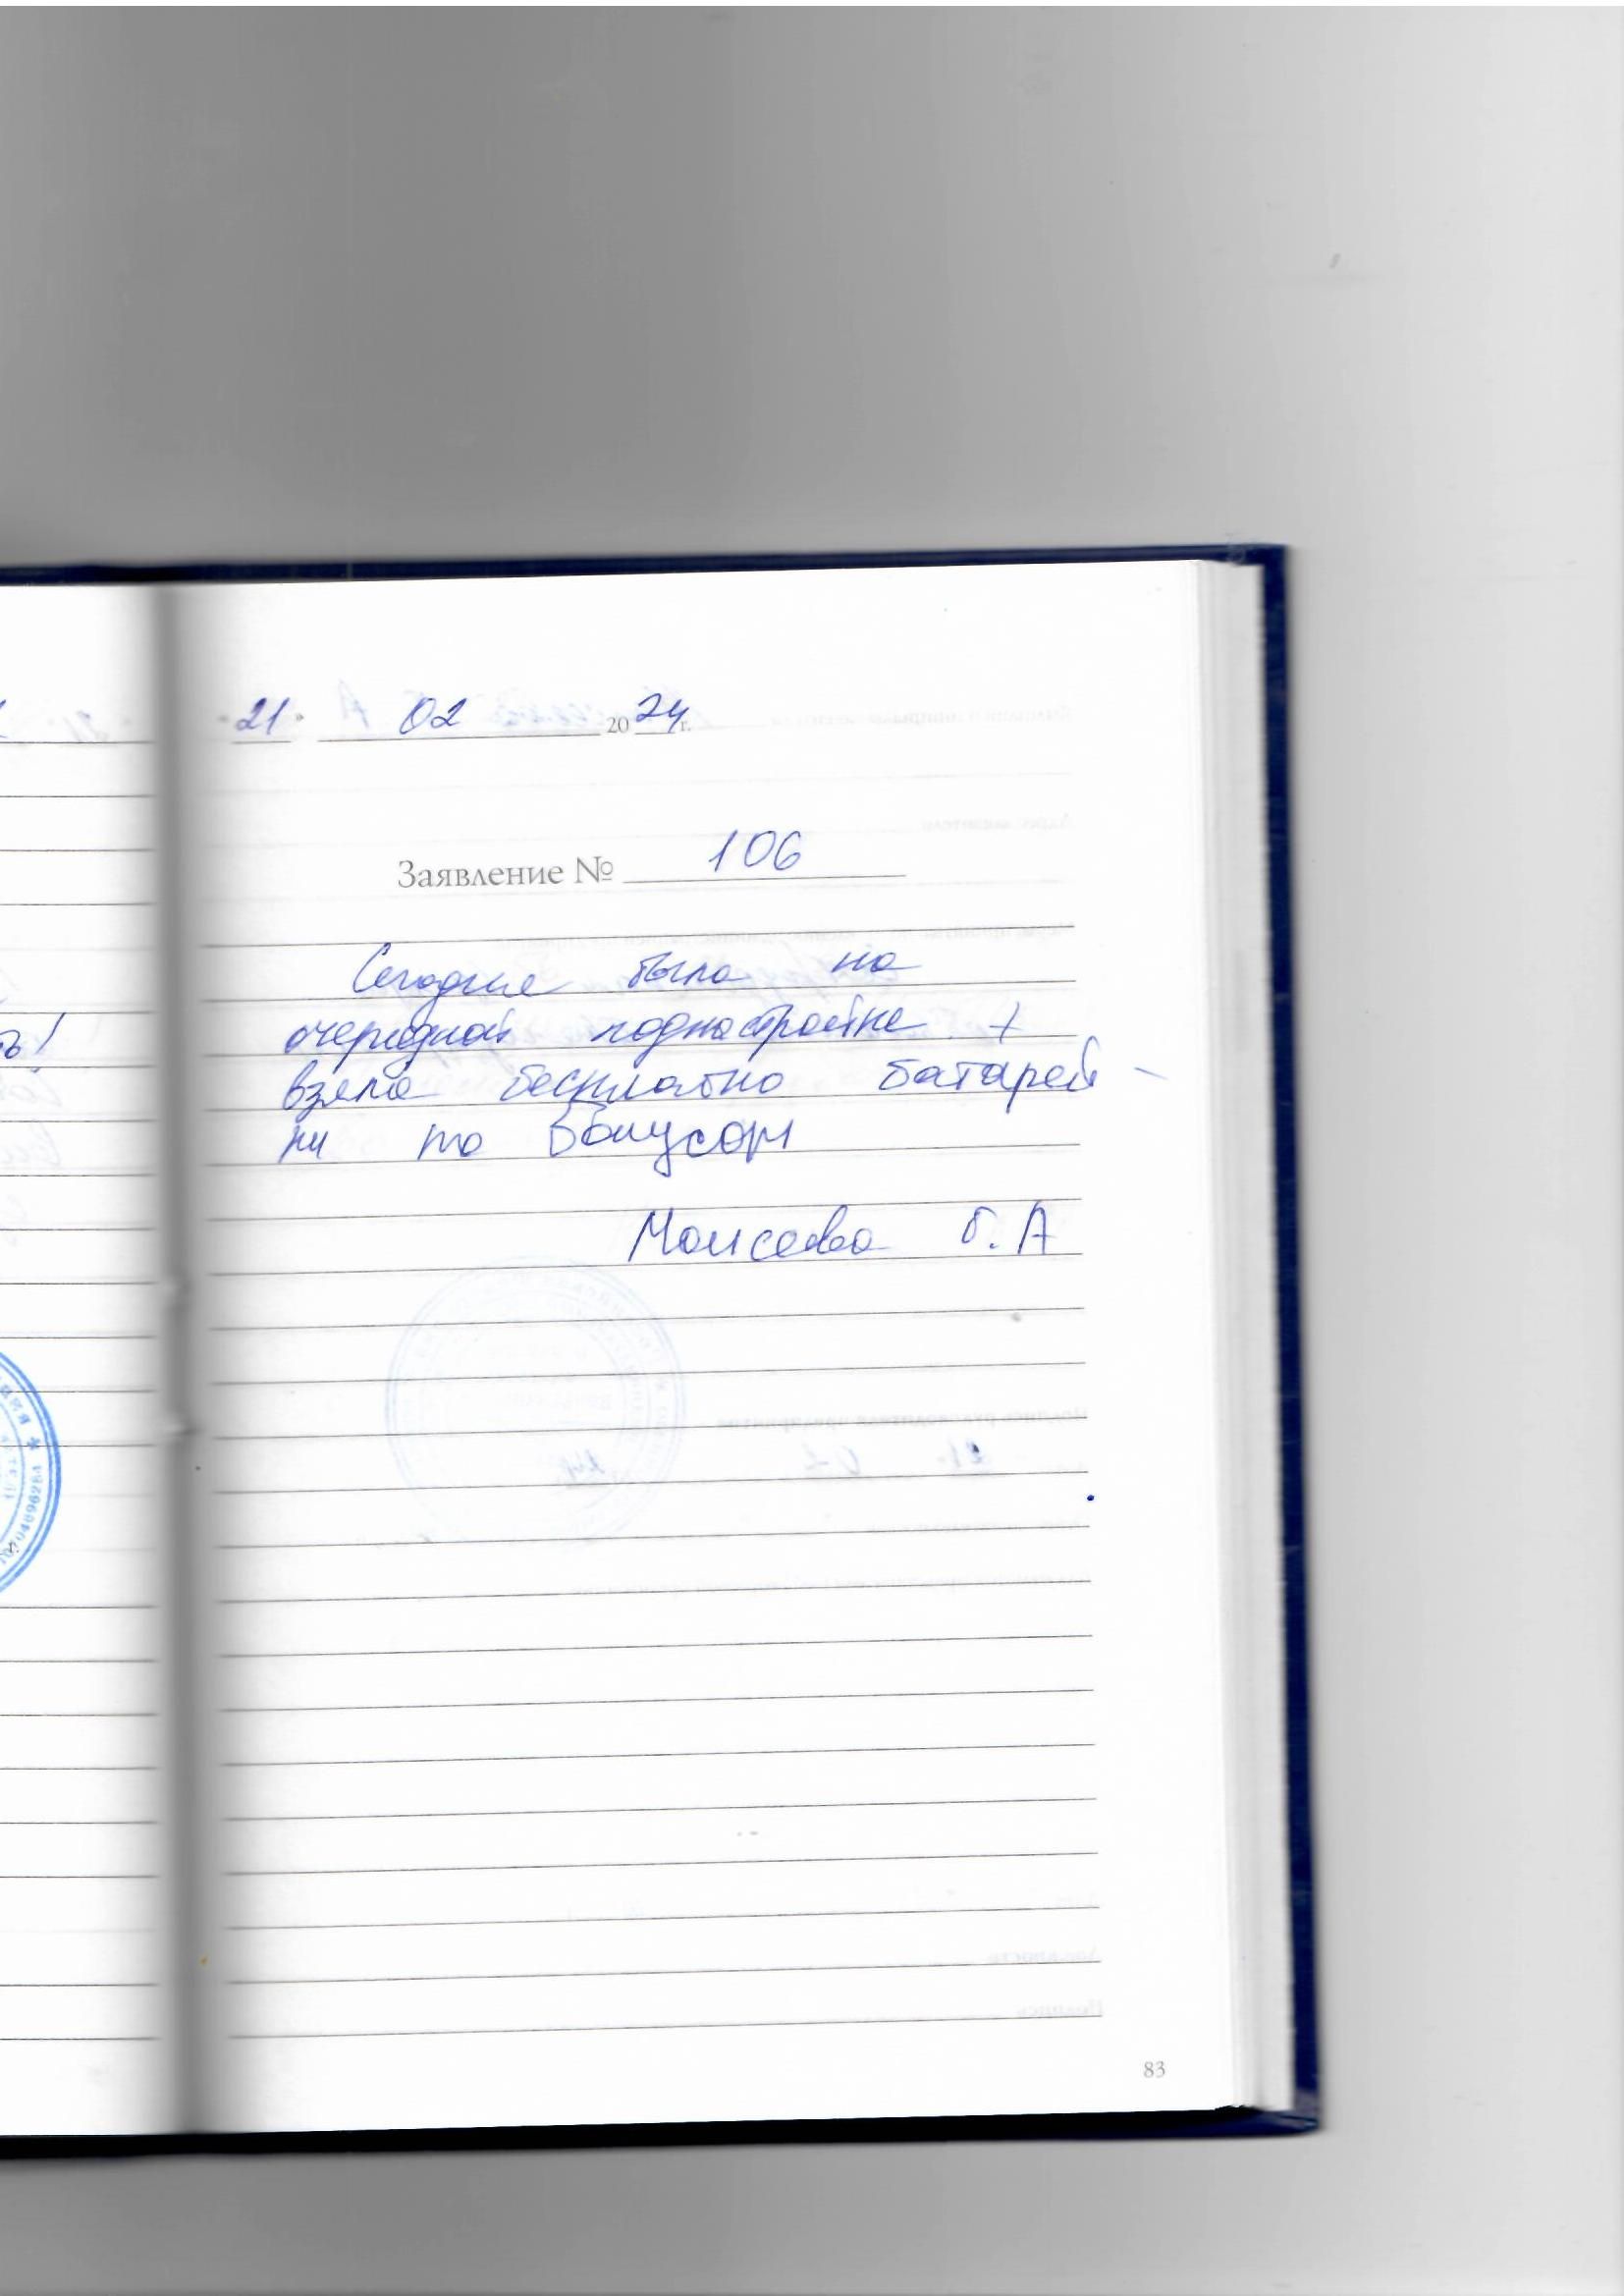 "21" 02 2024 г.
Заявление № 106
Сегодня была на
очередной поднастройке +
взяла бесплатно батарей-
ки по бонусам
Моисеева Б. А
83